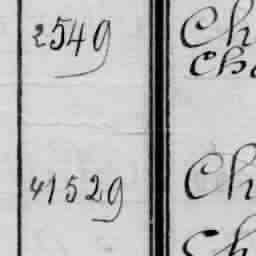 2549 Ch
Cha
41529 Ch
Ch